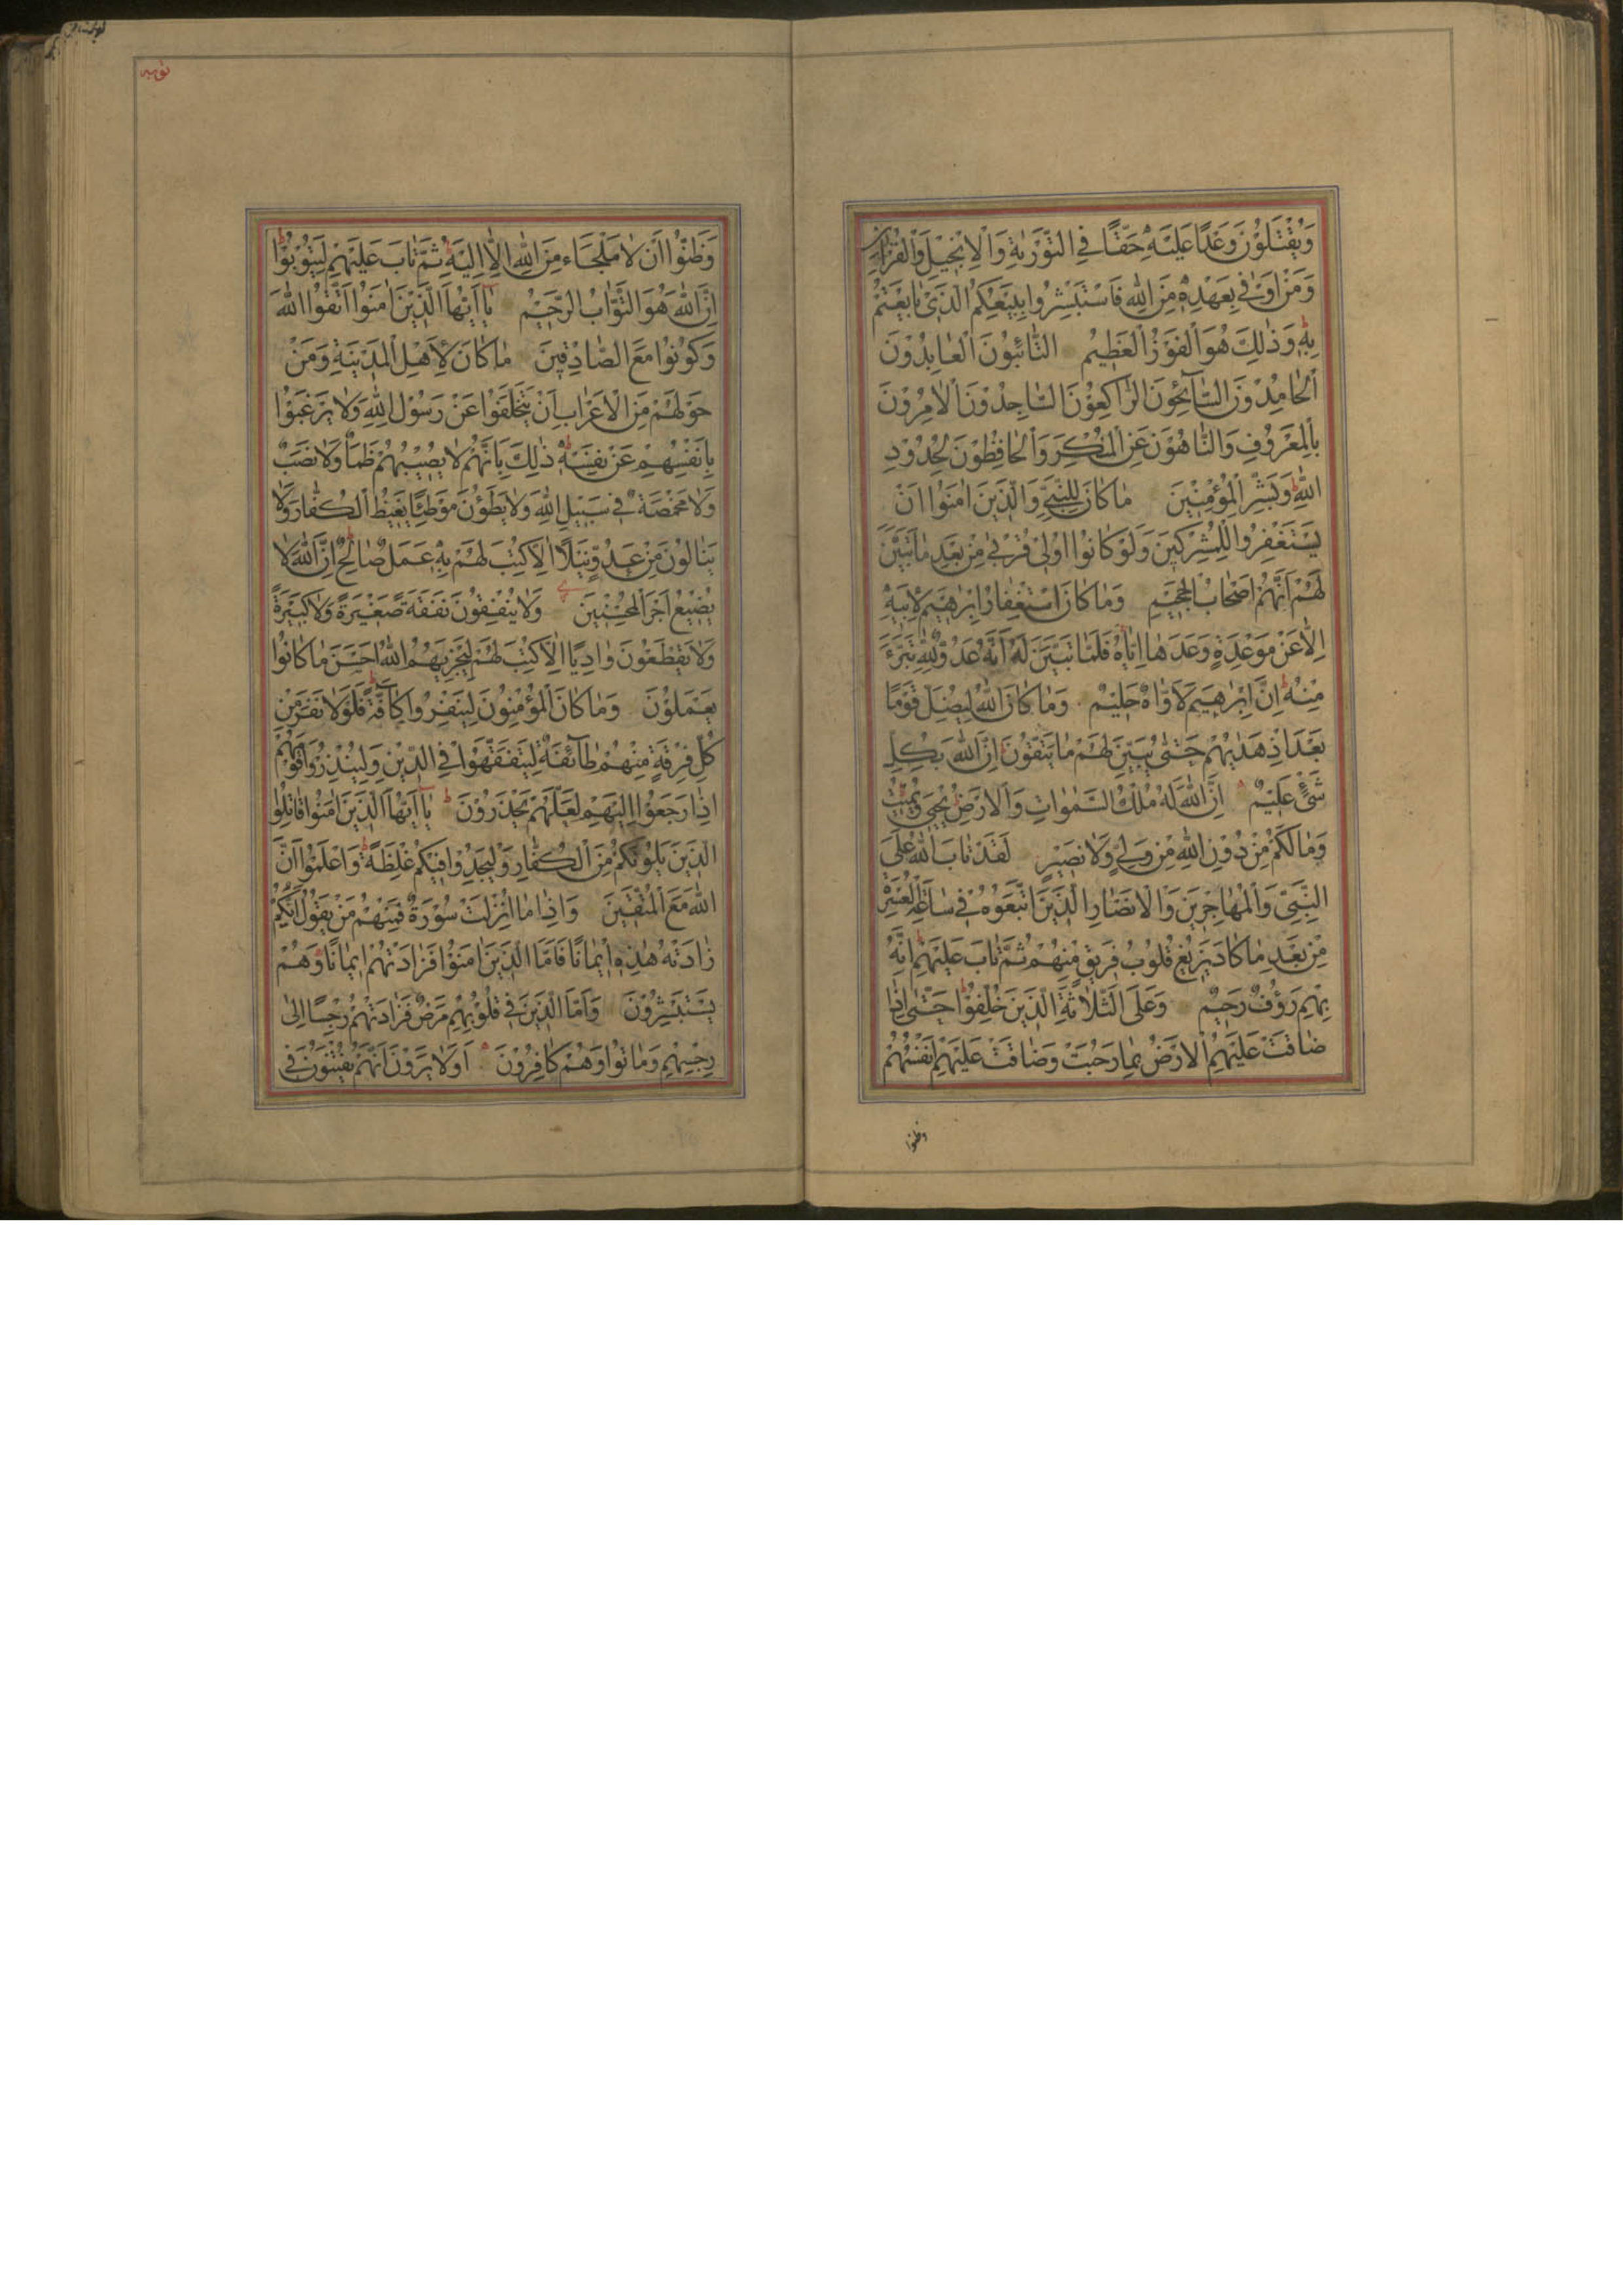 وَيُقْتَلُوْنَ وَعْدًا عَلَيْهِ حَقًّا فِي التَّوْرٰيةِ وَالْاِنْجِيْلِ وَالْقُرْاٰنِ
وَمَنْ اَوْفٰى بِعَهْدِهٖ مِنَ اللّٰهِ فَاسْتَبْشِرُوا بِبَيْعِكُمُ الَّذِيْ بَايَعْتُمْ
بِهٖ وَذٰلِكَ هُوَ الْفَوْزُ الْعَظِيْمُ التَّائِبُوْنَ الْعَابِدُوْنَ
الْحَامِدُوْنَ السَّآئِحُوْنَ الرَّاكِعُوْنَ السَّاجِدُوْنَ الْاٰمِرُوْنَ
بِالْمَعْرُوْفِ وَالنَّاهُوْنَ عَنِ الْمُنْكَرِ وَالْحَافِظُوْنَ لِحُدُوْدِ
اللّٰهِ وَبَشِّرِ الْمُؤْمِنِيْنَ مَا كَانَ لِلنَّبِيِّ وَالَّذِيْنَ اٰمَنُوْا اَنْ
يَسْتَغْفِرُوا لِلْمُشْرِكِيْنَ وَلَوْ كَانُوا اُولِيْ قُرْبٰى مِنْ بَعْدِ مَا تَبَيَّنَ
لَهُمْ اَنَّهُمْ اَصْحَابُ الْجَحِيْمِ وَمَا كَانَ اسْتِغْفَارُ اِبْرٰهِيْمَ لِاَبِيْهِ
اِلَّا عَنْ مَوْعِدَةٍ وَعَدَهَا اِيَّاهُ فَلَمَّا تَبَيَّنَ لَهُ اَنَّهُ عَدُوٌّ لِلّٰهِ تَبَرَّءَ
مِنْهُ اِنَّ اِبْرٰهِيْمَ لَاَوَّاهٌ حَلِيْمٌ وَمَا كَانَ اللّٰهُ لِيُضِلَّ قَوْمًا
بَعْدَ اِذْ هَدٰيهُمْ حَتّٰى يُبَيِّنَ لَهُمْ مَا يَتَّقُوْنَ اِنَّ اللّٰهَ بِكُلِّ
شَيْءٍ عَلِيْمٌ اِنَّ اللّٰهَ لَهُ مُلْكُ السَّمٰوَاتِ وَالْاَرْضِ يُحْيِيْ وَيُمِيْتُ
وَمَا لَكُمْ مِنْ دُوْنِ اللّٰهِ مِنْ وَلِيٍّ وَلَا نَصِيْرٍ لَقَدْ تَابَ اللّٰهُ عَلَى
النَّبِيِّ وَالْمُهَاجِرِيْنَ وَالْاَنْصَارِ الَّذِيْنَ اتَّبَعُوْهُ فِيْ سَاعَةِ الْعُسْرَةِ
مِنْ بَعْدِ مَا كَادَ يَزِيْغُ قُلُوْبُ فَرِيْقٍ مِنْهُمْ ثُمَّ تَابَ عَلَيْهِمْ اِنَّهُ
بِهِمْ رَؤُفٌ رَحِيْمٌ وَعَلَى الثَّلَاثَةِ الَّذِيْنَ خُلِّفُوْا حَتّٰى اِذَا
ضَاقَتْ عَلَيْهِمُ الْاَرْضُ بِمَا رَحُبَتْ وَضَاقَتْ عَلَيْهِمْ اَنْفُسُهُمْ
وظنوا
توبه
وَظَنُّوْا اَنْ لَا مَلْجَاءَ مِنَ اللّٰهِ اِلَّا اِلَيْهِ ثُمَّ تَابَ عَلَيْهِمْ لِيَتُوْبُوْا
اِنَّ اللّٰهَ هُوَ التَّوَّابُ الرَّحِيْمُ يَا اَيُّهَا الَّذِيْنَ اٰمَنُوا اتَّقُوا اللّٰهَ
وَكُوْنُوْا مَعَ الصَّادِقِيْنَ مَا كَانَ لِاَهْلِ الْمَدِيْنَةِ وَمَنْ
حَوْلَهُمْ مِنَ الْاَعْرَابِ اَنْ يَتَخَلَّفُوْا عَنْ رَسُوْلِ اللّٰهِ وَلَا يَرْغَبُوْا
بِاَنْفُسِهِمْ عَنْ نَفْسِهٖ ذٰلِكَ بِاَنَّهُمْ لَا يُصِيْبُهُمْ ظَمَأٌ وَلَا نَصَبٌ
وَلَا مَخْمَصَةٌ فِيْ سَبِيْلِ اللّٰهِ وَلَا يَطَؤُنَ مَوْطِئًا يَغِيْظُ الْكُفَّارَ وَلَا
يَنَالُوْنَ مِنْ عَدُوٍّ نَيْلًا اِلَّا كُتِبَ لَهُمْ بِهٖ عَمَلٌ صَالِحٌ اِنَّ اللّٰهَ لَا
يُضِيْعُ اَجْرَ الْمُحْسِنِيْنَ وَلَا يُنْفِقُوْنَ نَفَقَةً صَغِيْرَةً وَلَا كَبِيْرَةً
وَلَا يَقْطَعُوْنَ وَادِيًا اِلَّا كُتِبَ لَهُمْ لِيَجْزِيَهُمُ اللّٰهُ اَحْسَنَ مَا كَانُوْا
يَعْمَلُوْنَ وَمَا كَانَ الْمُؤْمِنُوْنَ لِيَنْفِرُوا كَآفَّةً فَلَوْلَا نَفَرَ مِنْ
كُلِّ فِرْقَةٍ مِنْهُمْ طَآئِفَةٌ لِيَتَفَقَّهُوْا فِي الدِّيْنِ وَلِيُنْذِرُوْا قَوْمَهُمْ
اِذَا رَجَعُوْا اِلَيْهِمْ لَعَلَّهُمْ يَحْذَرُوْنَ يَا اَيُّهَا الَّذِيْنَ اٰمَنُوْا قَاتِلُوا
الَّذِيْنَ يَلُوْنَكُمْ مِنَ الْكُفَّارِ وَلْيَجِدُوْا فِيْكُمْ غِلْظَةً وَاعْلَمُوْا اَنَّ
اللّٰهَ مَعَ الْمُتَّقِيْنَ وَاِذَا مَا اُنْزِلَتْ سُوْرَةٌ فَمِنْهُمْ مَنْ يَقُوْلُ اَيُّكُمْ
زَادَتْهُ هٰذِهٖ اِيْمَانًا فَاَمَّا الَّذِيْنَ اٰمَنُوْا فَزَادَتْهُمْ اِيْمَانًا وَهُمْ
يَسْتَبْشِرُوْنَ وَاَمَّا الَّذِيْنَ فِيْ قُلُوْبِهِمْ مَرَضٌ فَزَادَتْهُمْ رِجْسًا اِلٰى
رِجْسِهِمْ وَمَاتُوْا وَهُمْ كَافِرُوْنَ اَوَلَا يَرَوْنَ اَنَّهُمْ يُفْتَنُوْنَ فِيْ